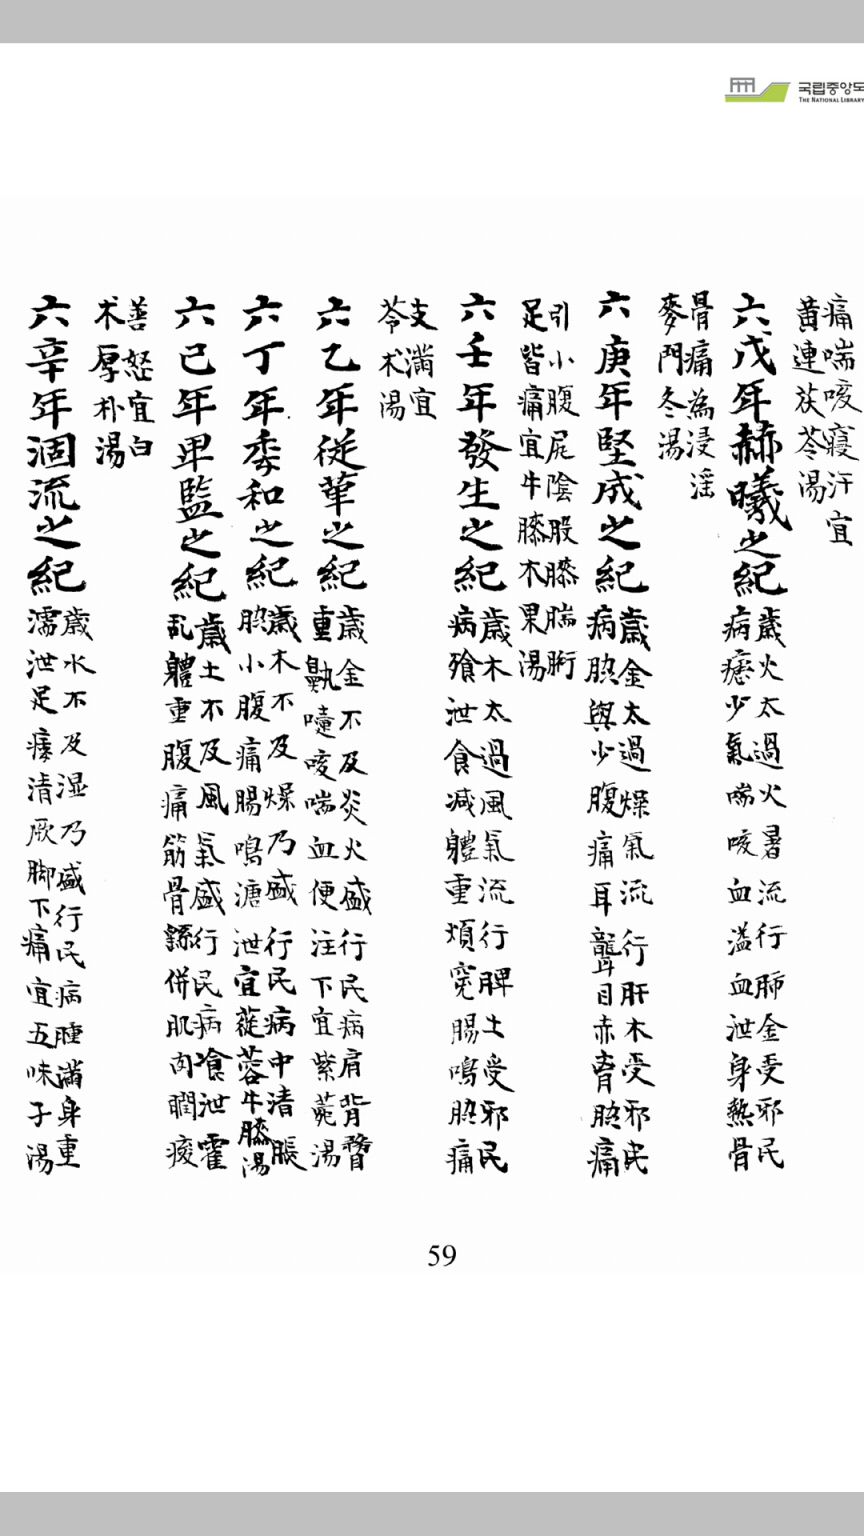 국립중앙도
THE NATIONAL LIBRARY
痛喘咳寑汗宜
黃連茯苓湯
六戊年赫曦之紀
歲火太過火暑流行肺金受邪民
病瘧少氣喘咳血溢血泄身熱骨
骨痛為浸淫
麥門冬湯
六庚年堅成之紀
歲金太過燥氣流行肝木受邪民
病脇與少腹痛耳聾目赤胷脇痛
引小腹尻陰股膝腨胻
足皆痛宜牛膝木果湯
六壬年發生之紀
歲木太過風氣流行脾土受邪民
病飱泄食减體重煩寃腸鳴脇痛
支滿宜
苓朮湯
六乙年從革之紀
歲金不及炎火盛行民病肩背瞀
重鼽嚏咳喘血便注下宜紫菀湯
六丁年委和之紀
歲木不及燥乃盛行民病中清脹
脇小腹痛腸鳴溏泄宜蓯蓉牛膝湯
六己年卑監之紀
歲土不及風氣盛行民病飱泄霍
乱體重腹痛筋骨繇倂肌肉瞤痠
善怒宜白
朮厚朴湯
六辛年涸流之紀
歲水不及湿乃盛行民病腫滿身重
濡泄足痿清厥脚下痛宜五味子湯
59